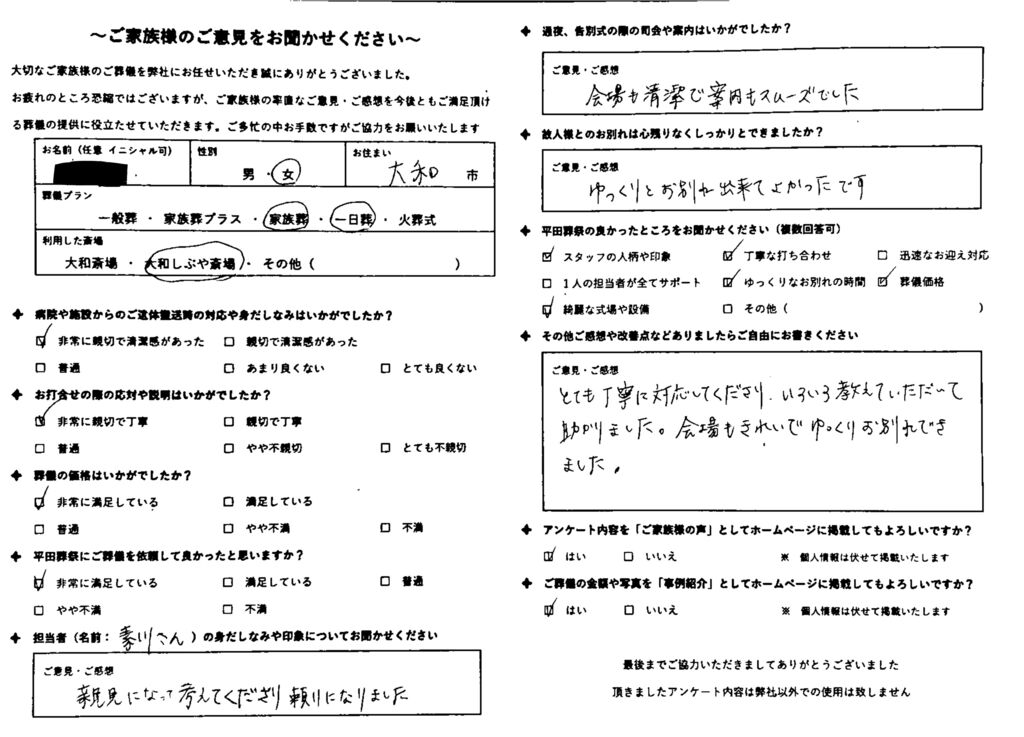 ～ご家族様のご意見をお聞かせください～
大切なご家族様のご葬儀を弊社にお任せいただき誠にありがとうございました。
お疲れのところ恐縮ではございますが、ご家族様の率直なご意見・ご感想を今後ともご満足頂け
る葬儀の提供に役立たせていただきます。ご多忙の中お手数ですがご協力をお願いいたします
お名前（任意 イニシャル可）
性別
男・女
お住まい
大和 市
葬儀プラン
一般葬 ・ 家族葬プラス ・ 家族葬 ・ 一日葬 ・ 火葬式
利用した斎場
大和斎場 ・ 大和しぶや斎場 ・ その他（ ）
✦ 病院や施設からのご遺体搬送時の対応や身だしなみはいかがでしたか？
☑ 非常に親切で清潔感があった □ 親切で清潔感があった
□ 普通 □ あまり良くない □ とても良くない
✦ お打合せの際の応対や説明はいかがでしたか？
☑ 非常に親切で丁寧 □ 親切で丁寧
□ 普通 □ やや不親切 □ とても不親切
✦ 葬儀の価格はいかがでしたか？
☑ 非常に満足している □ 満足している
□ 普通 □ やや不満 □ 不満
✦ 平田葬祭にご葬儀を依頼して良かったと思いますか？
☑ 非常に満足している □ 満足している □ 普通
□ やや不満 □ 不満
✦ 担当者（名前：秦川さん ）の身だしなみや印象についてお聞かせください
ご意見・ご感想
親見になって考えてくださり頼りになりました
✦ 通夜、告別式の際の司会や案内はいかがでしたか？
ご意見・ご感想
会場も清潔で案内もスムーズでした
✦ 故人様とのお別れは心残りなくしっかりとできましたか？
ご意見・ご感想
ゆっくりとお別れ出来てよかったです
✦ 平田葬祭の良かったところをお聞かせください（複数回答可）
☑ スタッフの人柄や印象 ☑ 丁寧な打ち合わせ □ 迅速なお迎え対応
□ 1人の担当者が全てサポート ☑ ゆっくりなお別れの時間 ☑ 葬儀価格
☑ 綺麗な式場や設備 □ その他（ ）
✦ その他ご感想や改善点などありましたらご自由にお書きください
ご意見・ご感想
とても丁寧に対応してくださり、いろいろ教えていただいて
助かりました。会場もきれいでゆっくりお別れでき
ました。
✦ アンケート内容を「ご家族様の声」としてホームページに掲載してもよろしいですか？
☑ はい □ いいえ ※ 個人情報は伏せて掲載いたします
✦ ご葬儀の金額や写真を「事例紹介」としてホームページに掲載してもよろしいですか？
☑ はい □ いいえ ※ 個人情報は伏せて掲載いたします
最後までご協力いただきましてありがとうございました
頂きましたアンケート内容は弊社以外での使用は致しません